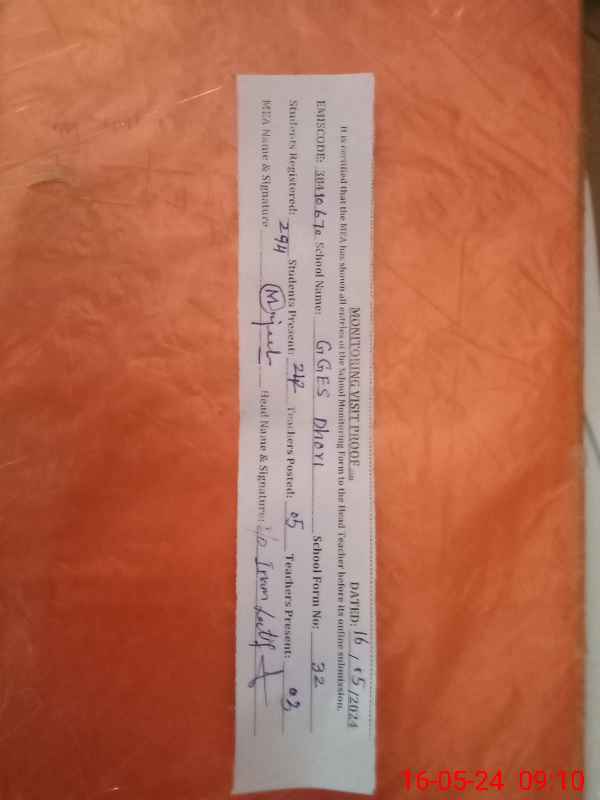 MONITORING VISIT PROOF DATED: 16/05/2024
It is certified that the MEA has shown all entries of the School Monitoring Form to the Head Teacher before its online submission.
EMISCODE: School Name: GGES Dhori School Form No: 32
Students Registered: 294 Students Present: Teachers Posted: 05 Teachers Present: 03
MEA Name & Signature Head Name & Signature: Iram Latif
16-05-24 09:10